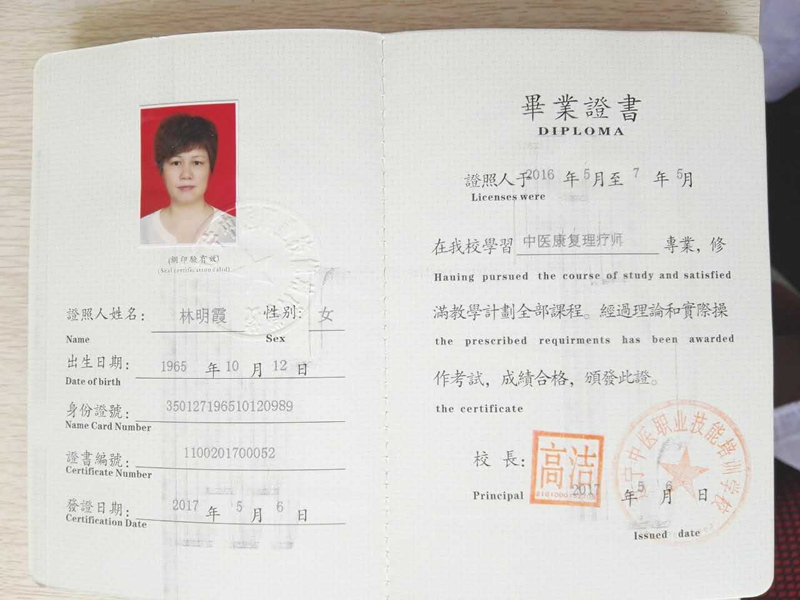 (鋼印驗有效)
(Seal certification valid)
證照人姓名: 林明霞 性别: 女
Name Sex
出生日期: 1965 年 10 月 12 日
Date of birth
身份證號: 350127196510120989
Name Card Number
證書編號: 1100201700052
Certificate Number
發證日期: 2017 年 5 月 6 日
Certification Date
畢業證書
DIPLOMA
證照人于2016 年 5月至 7 年 5月
Licenses were
在我校學習 中医康复理疗师 專業，修
Hauing pursued the course of study and satisfied
滿教學計劃全部課程。經過理論和實際操
the prescribed requirments has been awarded
作考試，成績合格，頒發此證。
the certificate
校長: 高洁
Principal 2017 年 5 月 6 日
Issued date
中医职业技能培训学校